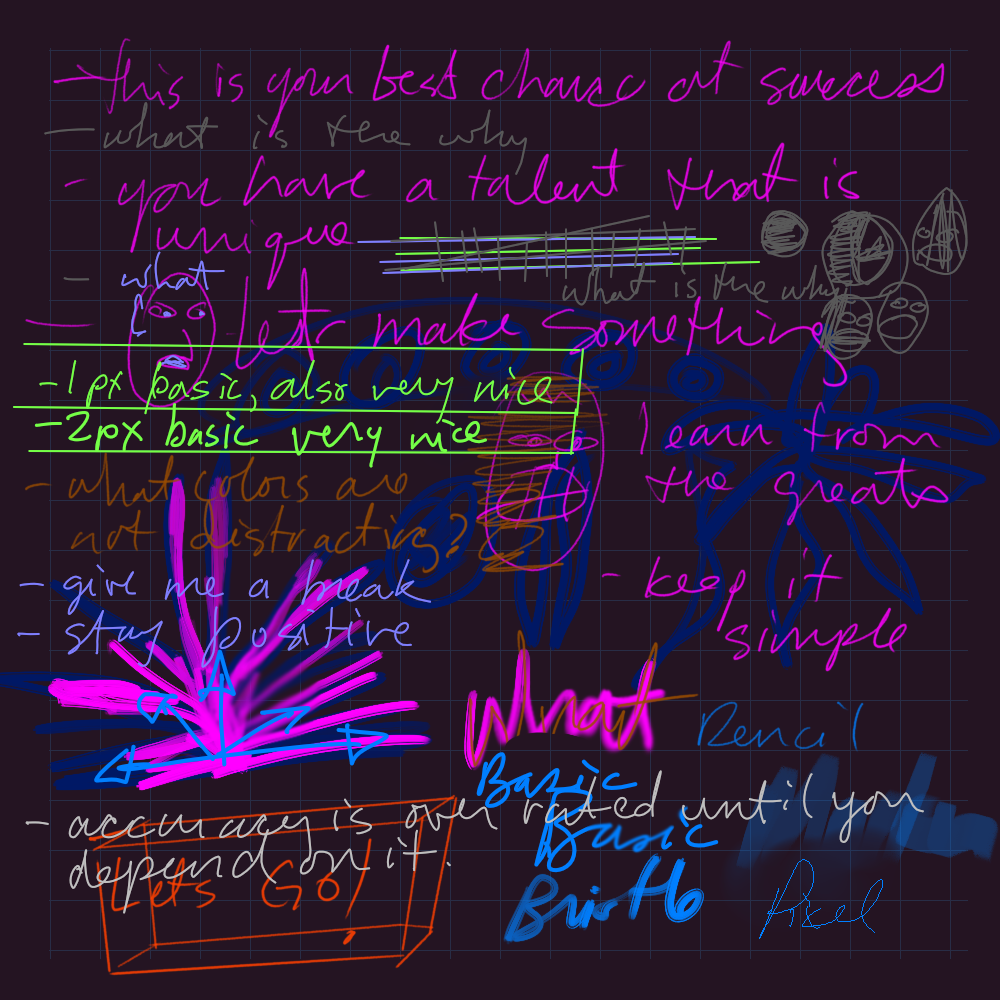 - this is your best chance at success
- what is the why
- you have a talent that is
unique
what is the why
- what
- Lets make something
- 1px basic, also very nice
- 2px basic very nice
learn from
the greats
- what colors are
not distracting?
- give me a break
- keep it
simple
- stay positive
What
Pencil
Basic
- accuracy is over rated until you
depend on it.
Basic
Lets GO!
Pixel